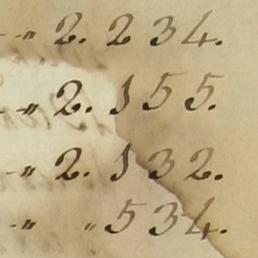 - " 2. 234.
- " 2. 155.
- " 2. 132.
- " " 534.